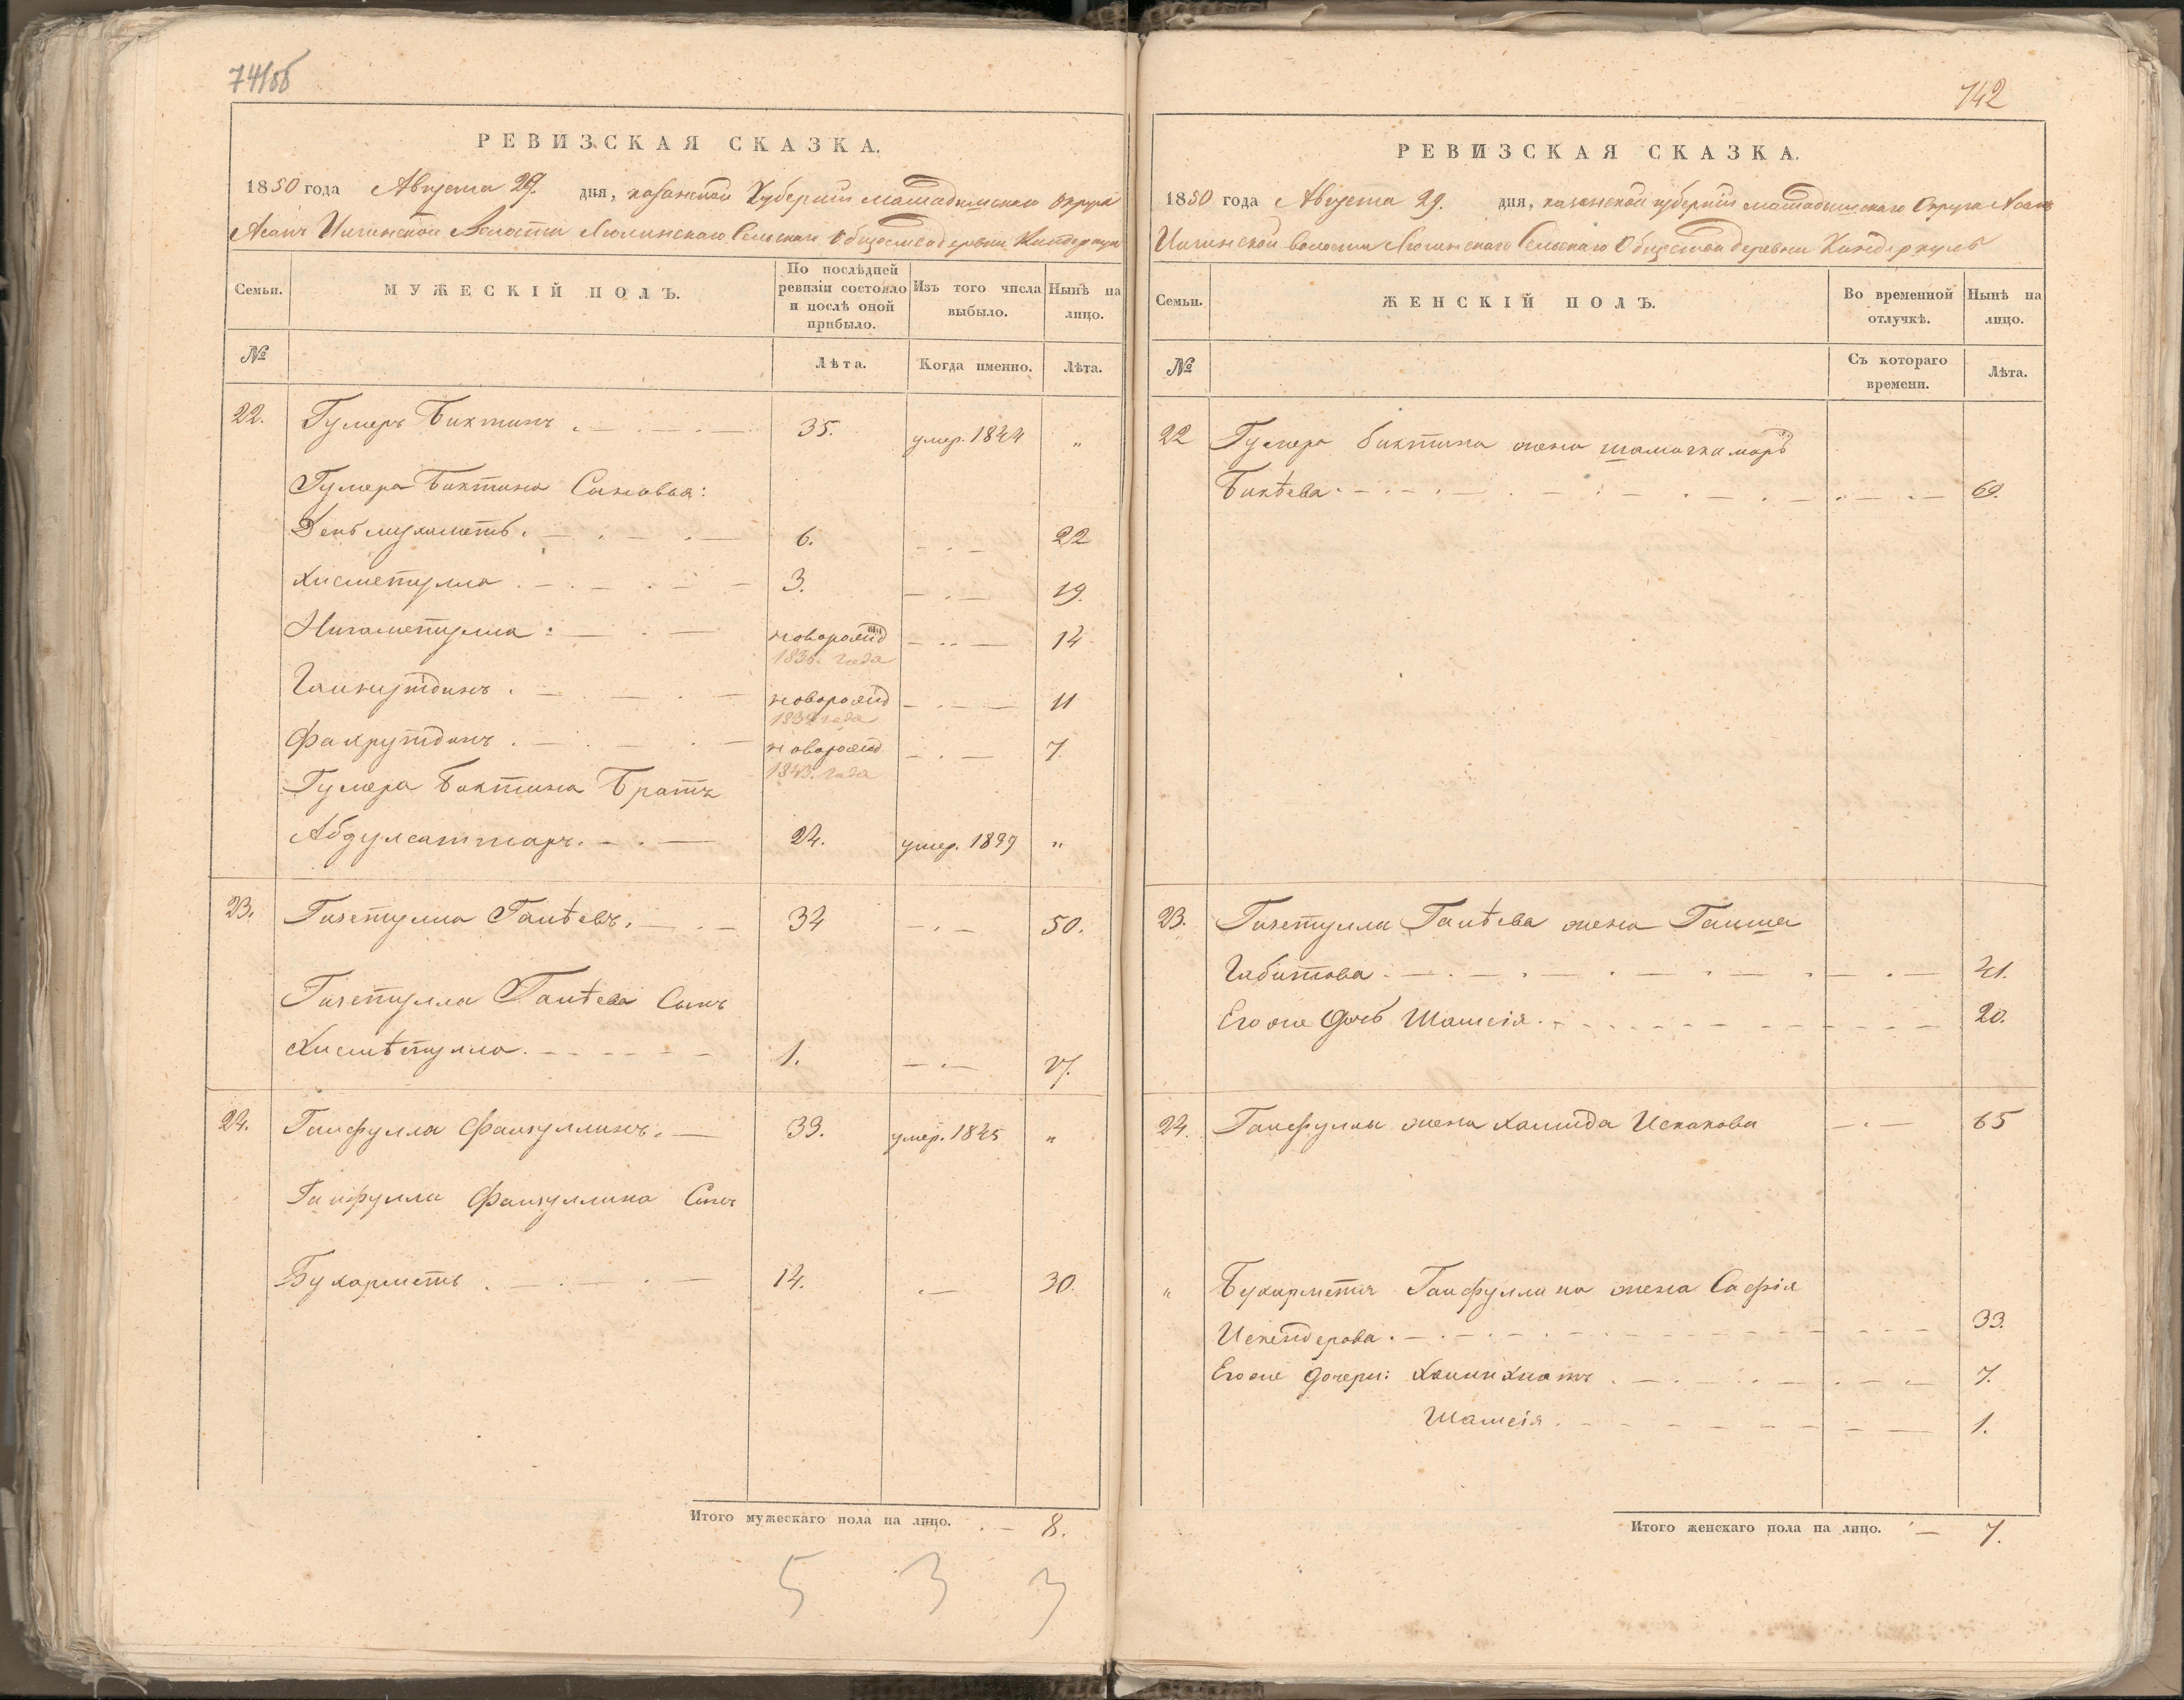 741об
РЕВИЗСКАЯ СКАЗКА.
1850 года Августа 29. дня, казанской Губерніи мамадышскаго округа
Асанъ Илгинской Волости Люлинскаго Сельскаго Общества деревни Киндеркуль
Семьи.
МУЖЕСКІЙ ПОЛЪ.
По послѣдней ревизіи состояло и послѣ оной прибыло.
Изъ того числа выбыло.
Нынѣ на лицо.
№
Лѣта.
Когда именно.
Лѣта.
22. Гумеръ Биктинъ 35. умер. 1844 „
Гумера Биктина Сыновья:
6. 22
Хисметулла 3. 19.
Нигаметулла новорожд 14
1836. года
Гайнутдинъ новорожд 11
1839 года
Фахрутдинъ новорожд 7.
1843. года
Гумера Биктина Братъ
Абдулсаттаръ 24. умер. 1849 „
23. Гизетулла Галѣевъ. 34 50.
Гизетулла Галѣева Сынъ
Хисмѣтулла 1. 17.
24. Гайфулла Файзуллинъ. 39. умер. 1845 „
Гайфулла Файзуллина Сынъ
Бухарметь 14. 30.
Итого мужескаго пола на лицо. 8.
5 3 3
742
РЕВИЗСКАЯ СКАЗКА.
1850 года Августа 29. дня, казанской губерніи мамадышскаго Округа Асанъ
Илгинской волости Люлинскаго Сельскаго Общества деревни Киндеркуль
Семьи.
ЖЕНСКІЙ ПОЛЪ.
Во временной отлучкѣ.
Нынѣ на лицо.
№
Съ котораго времени.
Лѣта.
22 Гумера биктина жена
Бикѣева 69.
23. Гизетулла Галѣева жена Гайша
Габитова 41.
Его же дочь Шамсія 20.
24. Гайфуллы жена Хамида Исхакова 65
„ Бухарметя Гайфуллина жена Сафія
Искендерова 33.
Его же дочери: 7.
Шамсія 1.
Итого женскаго пола на лицо. 7.